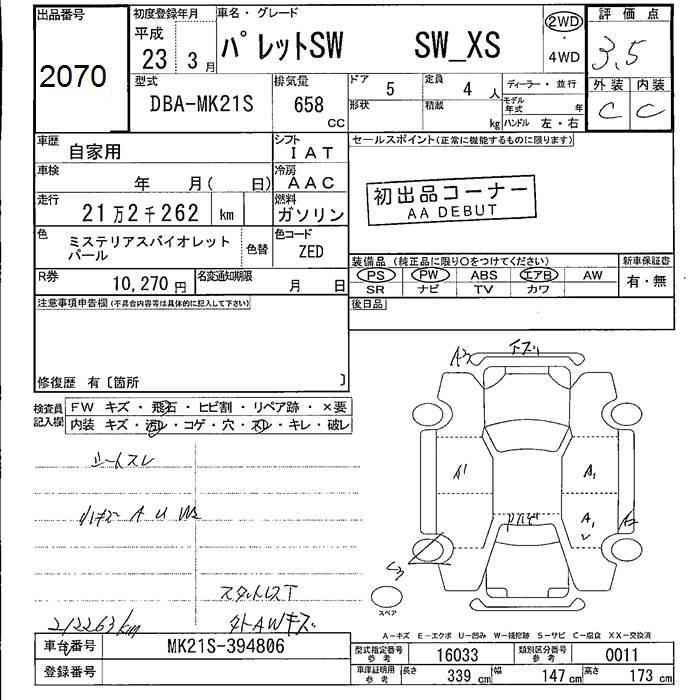 出品番号 初度登録年月 車名・グレード 評価点
2070 平成 23年 3月 パレットSW SW_XS 2WD・4WD 3.5
型式 排気量 ドア 定員 ディーラー・並行 外装 内装
DBA-MK21S 658 CC 5 4人 C C
形状 積載 kg モデル年式 年
ハンドル 左・右
車歴 自家用 シフト IAT セールスポイント(正常に機能するものに限ります)
車検 年 月( 日) 冷房 AAC
初出品コーナー
AA DEBUT
走行 21万2千262 km 燃料 ガソリン
色 ミステリアスバイオレット 色替 色コード ZED
パール
装備品 (純正品に限り○をつけてください) 新車保証書
R券 10,270円 名変通知期限 月 日
PS PW ABS エアB AW 有・無
SR ナビ TV カワ
注意事項申告欄(不具合内容等は具体的に記入して下さい) 後日品
修復歴 有〔箇所 〕
検査員記入欄 FW キズ・飛石・ヒビ割・リペア跡・×要
内装 キズ・汚レ・コゲ・穴・スレ・キレ・破レ
シートスレ
小キズ A U W2
スタットレスT
212263km 外AWキズ
下ズリ
A1
A1
A1
スペア
A-キズ E-エクボ U-凹み W-補修跡 S-サビ C-腐食 XX-交換済
車台番号 MK21S-394806
登録番号
型式指定番号 参考 16033 類別区分番号 参考 0011
車庫証明用 参考 長さ 339 cm 幅 147 cm 高さ 173 cm